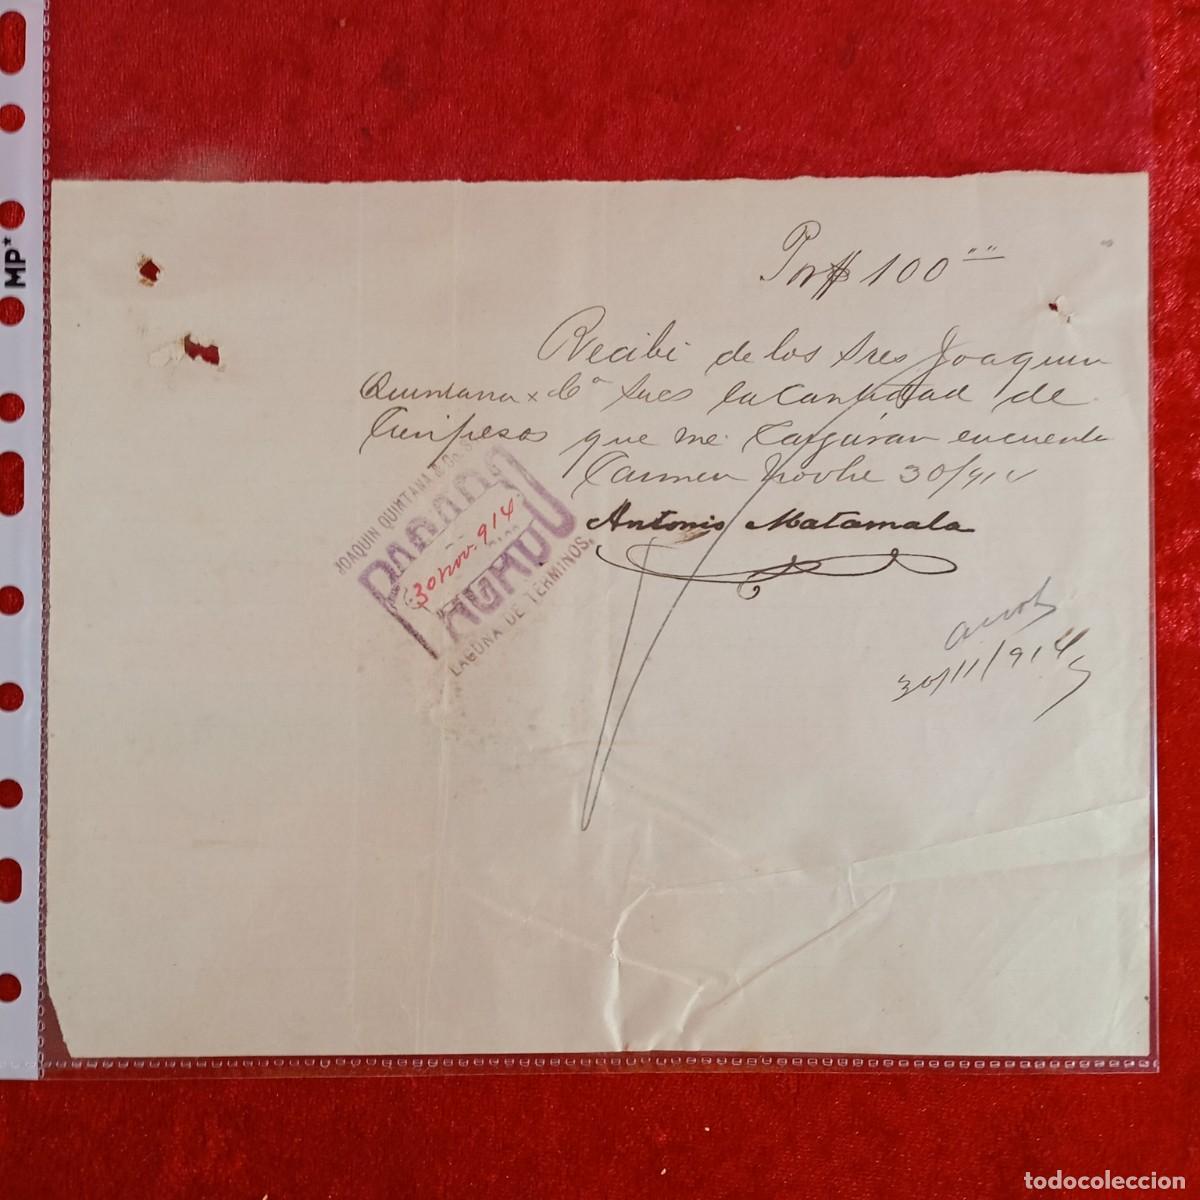 Por $ 100 "" ""
Recibi de los Sres Joaquin
Quintana x Cª Sucs la Cantidad de
Cien pesos que me Cargúran en cuenta
Carmen Novbe 30/914
Antonio Matamala
JOAQUIN QUINTANA & Co. S
PAGADO
30 Nov. 914
LAGUNA DE TERMINOS.
30/11/914
MP*
todocoleccion